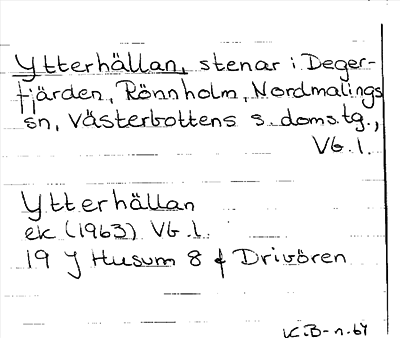 Ytterhällan, stenar i Deger-
fjärden, Rönnholm, Nordmalings
sn, Västerbottens s. doms.tg.,
Vb. l.
Ytterhällan
ek (1963) Vb l.
19 J Husum 8 f Drivören